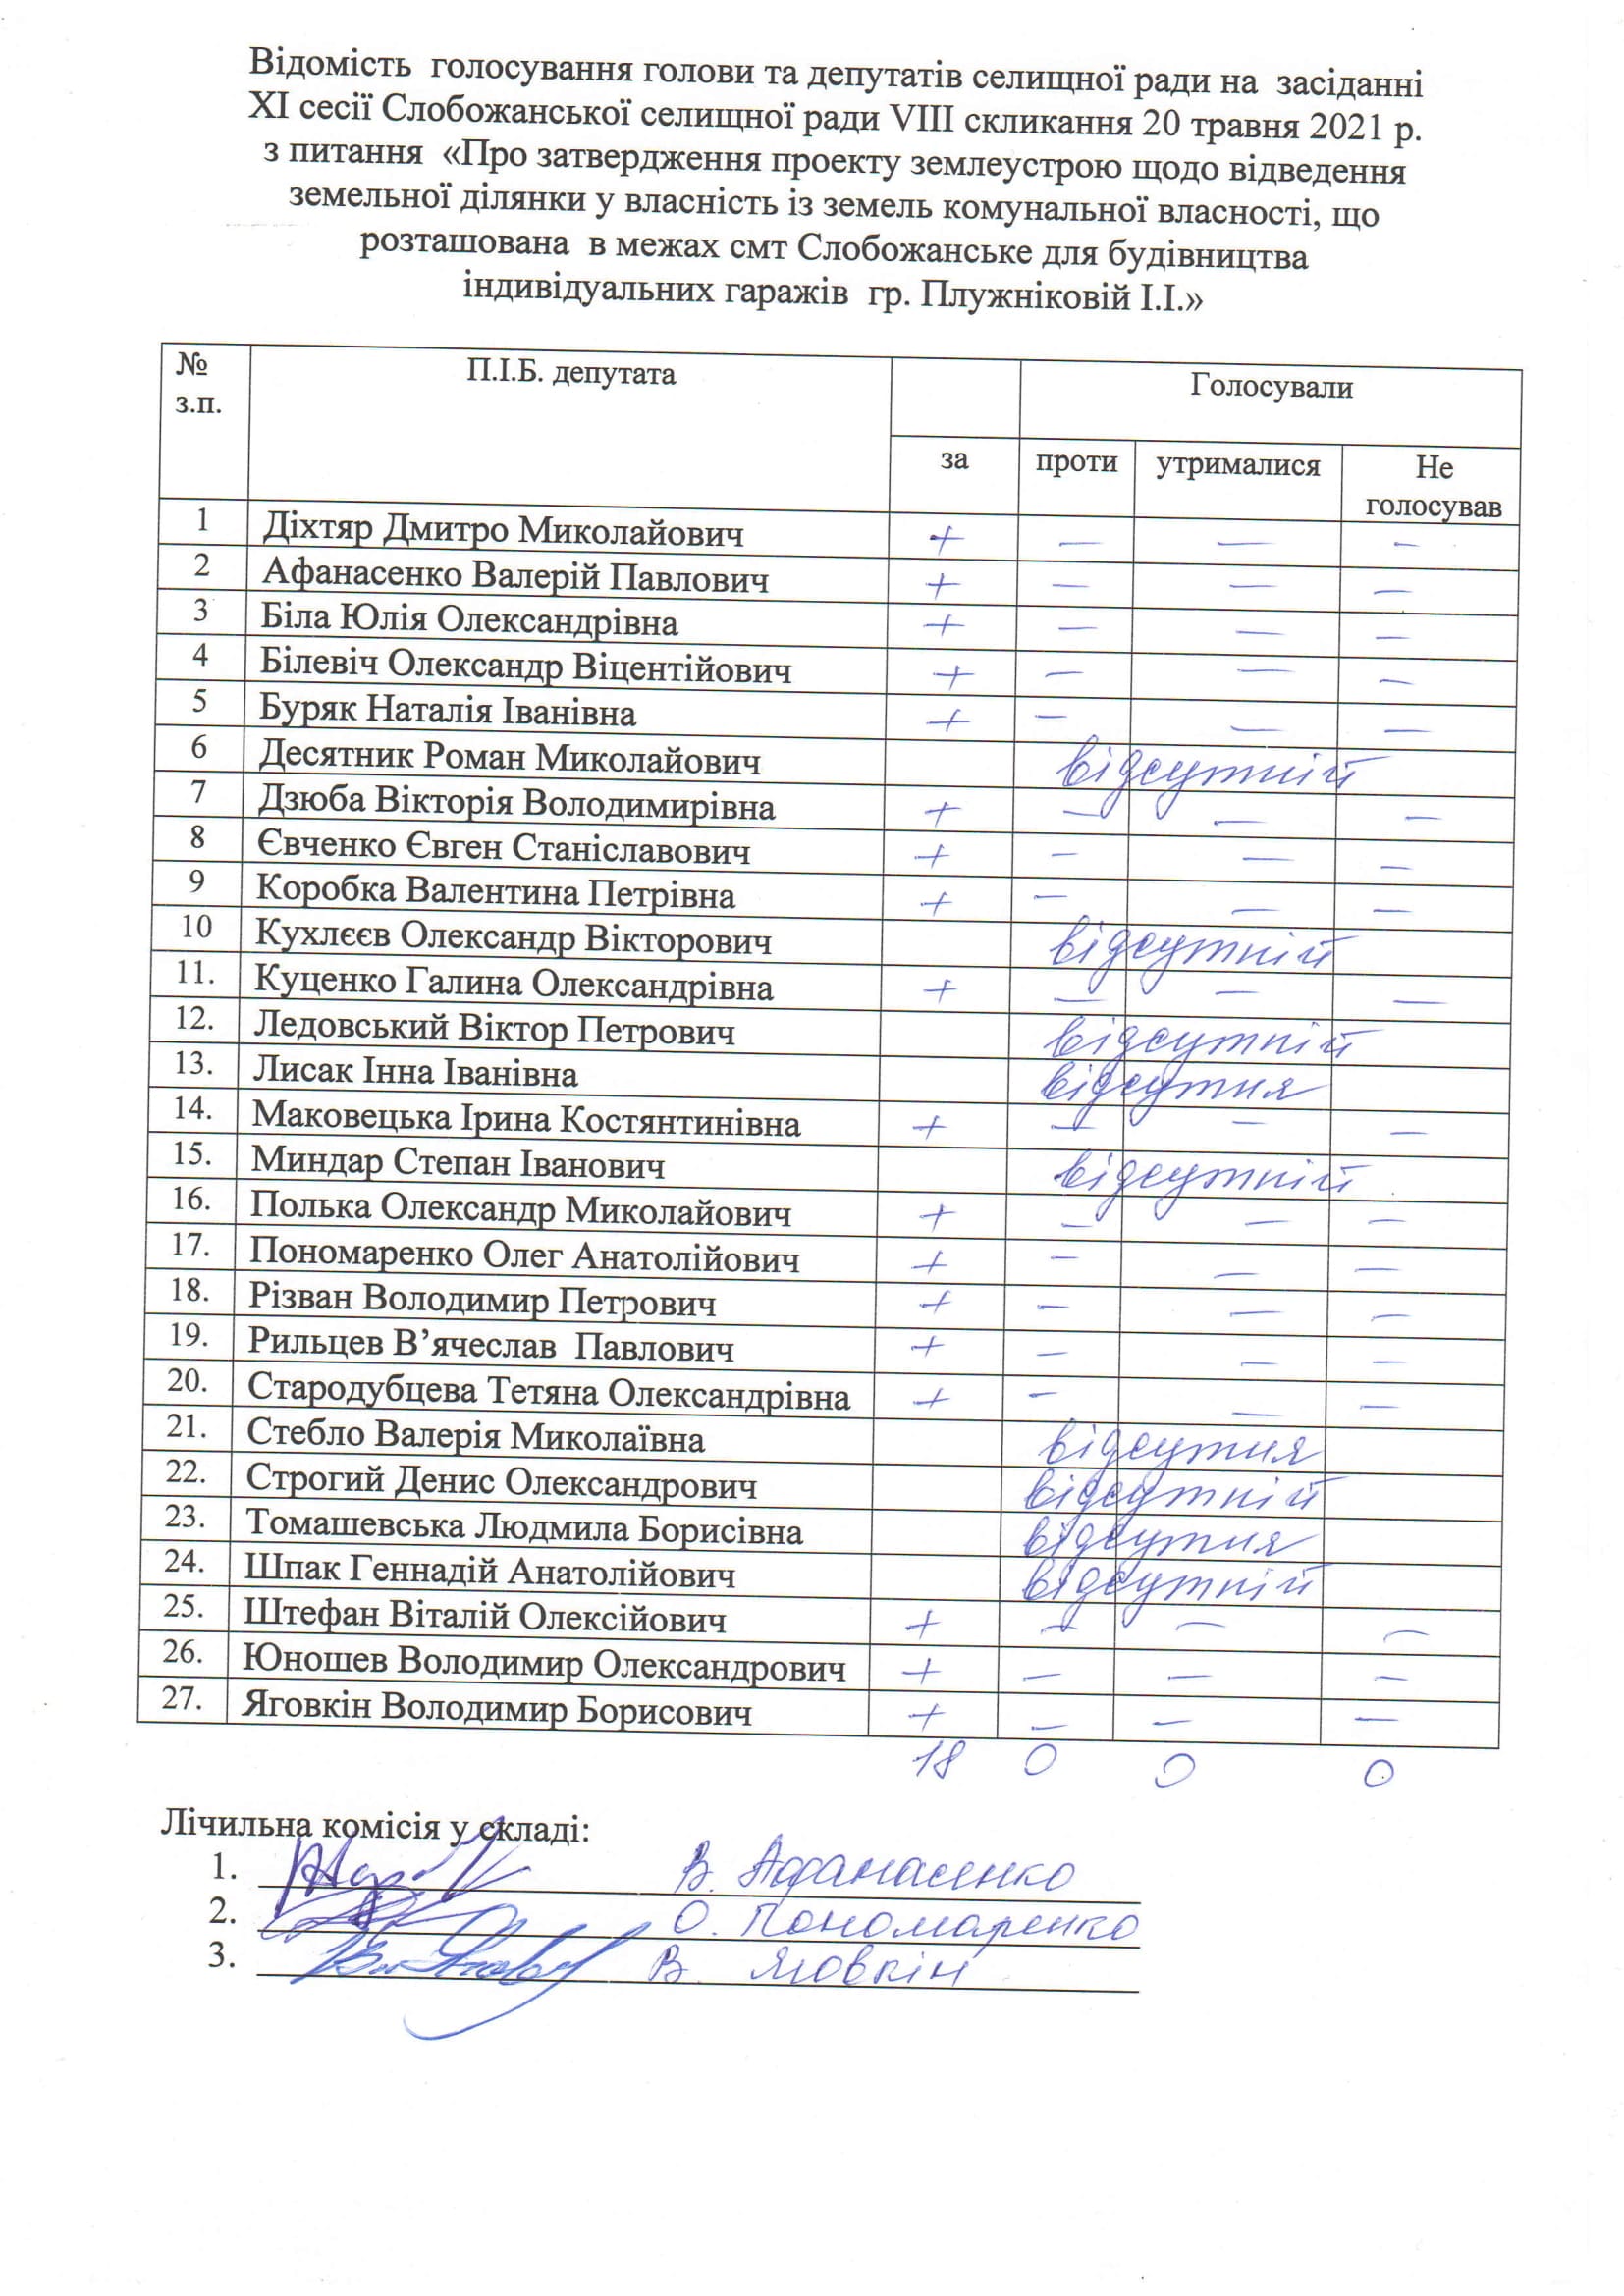 Відомість голосування голови та депутатів селищної ради на засіданні
XI сесії Слобожанської селищної ради VIII скликання 20 травня 2021 р.
з питання «Про затвердження проекту землеустрою щодо відведення
земельної ділянки у власність із земель комунальної власності, що
розташована в межах смт Слобожанське для будівництва
індивідуальних гаражів гр. Плужніковій І.І.»
№ з.п. П.І.Б. депутата Голосували
за проти утрималися Не голосував
1 Діхтяр Дмитро Миколайович + — — —
2 Афанасенко Валерій Павлович + — — —
3 Біла Юлія Олександрівна + — — —
4 Білевіч Олександр Віцентійович + — — —
5 Буряк Наталія Іванівна + — — —
6 Десятник Роман Миколайович відсутній
7 Дзюба Вікторія Володимирівна + — — —
8 Євченко Євген Станіславович + — — —
9 Коробка Валентина Петрівна + — — —
10 Кухлєєв Олександр Вікторович відсутній
11. Куценко Галина Олександрівна + — — —
12. Ледовський Віктор Петрович відсутній
13. Лисак Інна Іванівна відсутня
14. Маковецька Ірина Костянтинівна + — — —
15. Миндар Степан Іванович відсутній
16. Полька Олександр Миколайович + — — —
17. Пономаренко Олег Анатолійович + — — —
18. Різван Володимир Петрович + — — —
19. Рильцев В’ячеслав Павлович + — — —
20. Стародубцева Тетяна Олександрівна + — — —
21. Стебло Валерія Миколаївна відсутня
22. Строгий Денис Олександрович відсутній
23. Томашевська Людмила Борисівна відсутня
24. Шпак Геннадій Анатолійович відсутній
25. Штефан Віталій Олексійович + — — —
26. Юношев Володимир Олександрович + — — —
27. Яговкін Володимир Борисович + — — —
18 0 0 0
Лічильна комісія у складі:
1. В. Афанасенко
2. О. Пономаренко
3. В. Яговкін